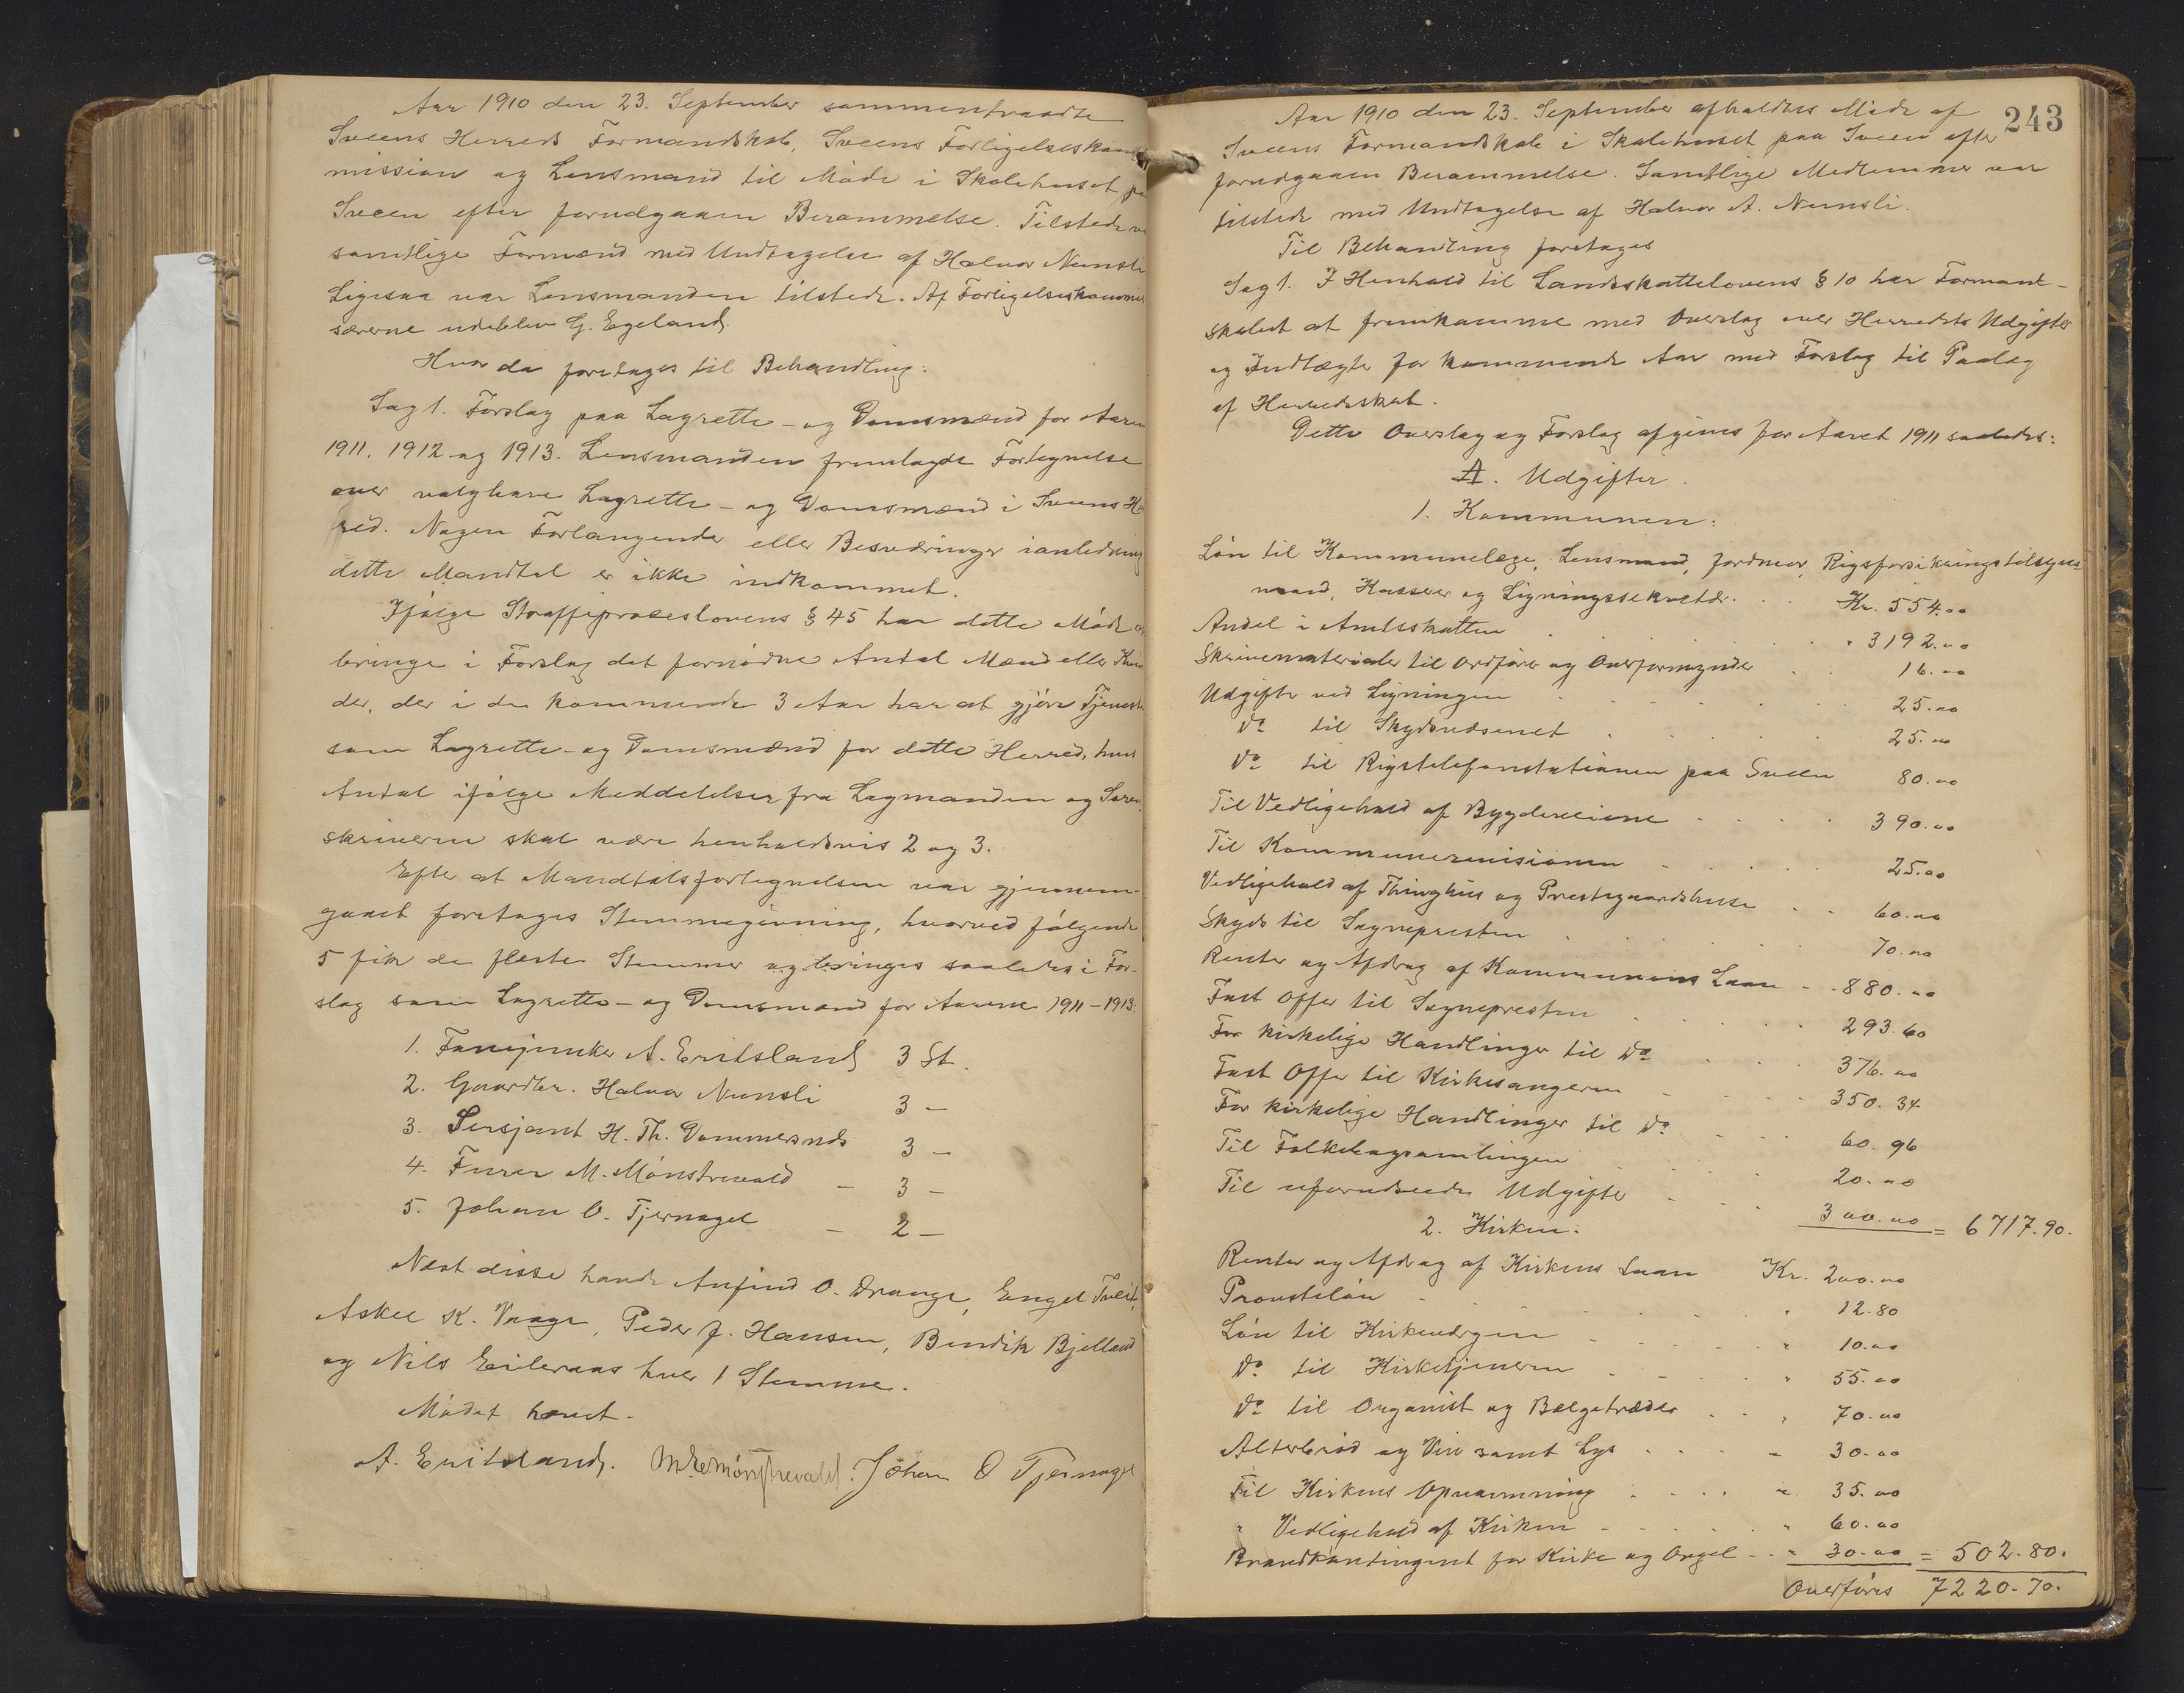 Aar 1910 den 23. September sammentraadte
Sveens Herreds Formandskab, Sveens Forligelseskom
mission og Lensmand til Møde i Skolehuset pa
Sveen efter forudgaaen Berammelse. Tilstede v
samtlige Formænd med Undtagelse af Halvor Nernsli
Ligesaa var Lensmanden tilstede. Af Forligelseskommis
særerne udeblev G. Egeland.
Hvor da foretages til Behandling:
Sag 1. Forslag paa Lagrette- og Domsmænd for Aaren
1911, 1912 og 1913. Lensmanden fremlagde Fortegnelse
over valgbare Lagrette- og Domsmænd i Sveens He
red. Nogen Forlangender eller Besværinger i anledning
dette Mandtal er ikke indkommet.
Ifølge Straffeproceslovens § 45 har dette Møde a
bringe i Forslag det fornødne Antal Mænd eller Kvin
der, der i de kommende 3 Aar har at gjøre Tjeneste
som Lagrette- og Domsmænd for dette Herred, hvis
Antal ifølge Meddelelser fra Lagmanden og Soren-
skriveren skal være henholdsvis 2 og 3.
Efter at Mandtalsfortegnelsen var gjennem-
gaaet foretages Stemmegivning, hvorved følgende
5 fik de fleste Stemmer og bringes saaledes i For-
slag som Lagrette- og Domsmænd for Aarene 1911-1913:
1. Fanejunker A. Eritsland 3 St.
2. Gaardbr. Halvor Nernsli 3 -
3. Sersjant H. Th. Dommersnds 3 -
4. Furer M. Mønstrevold - 3 -
5. Johan O. Tjernagel - 2 -
Næst disse havde Anfind O. Drange, Engel Tveit,
Askel K. Vaage, Peder J. Hansen, Bendik Bjelland
og Nils Eileraas hver 1 Stemme.
Mødet hævet.
A. Eritsland. M. E. Mønstrevold. Johan O Tjernagel
243
Aar 1910 den 23. September afholdtes Møde af
Sveens Formandskab i Skolehuset paa Sveen efter
forudgaaen Berammelse. Samtlige Medlemmer var
tilstede med Undtagelse af Halvor A. Nernsli.
Til Behandling foretages
Sag 1. I Henhold til Landsskattelovens § 10 har Formand-
skabet at fremkomme med Overslag over Herredets Udgifter
og Indtægter for kommende Aar med Forslag til Paalæg
af Herredsskat.
Dette Overslag og Forslag afgives for Aaret 1911 saaledes:
A. Udgifter.
1. Kommunen:
Løn til Kommunelæge, Lensmand, Jordmor, Rigsforsikringstilsyns-
mand, Kasserer og Ligningssekretær. Kr. 554.00
Andel i Amtsskatten " 3192.00
Skrivematerialer til Ordfører og Overformynder 16.00
Udgifter ved Ligningen 25.00
Do til Skydsvæsenet 25.00
Do til Rigstelefonstationen paa Sveen 80.00
Til Vedligehold af Bygdeveiene 390.00
Til Kommunerevisionen 25.00
Vedligehold af Thinghus og Prestegaardshuse 60.00
Skyds til Sognepresten 70.00
Renter og Afdrag af Kommunens Laan 880.00
Fast Offer til Sognepresten 293.60
For kirkelige Handlinger til Do 376.00
Fast Offer til Kirkesangeren 350.34
For kirkelige Handlinger til Do 60.96
Til Folkebogsamlingen 20.00
Til uforudseede Udgifter 300.00 = 6717.90.
2. Kirken.
Renter og Afdrag af Kirkens Laan Kr. 200.00
Provsteløn " 12.80
Løn til Kirkeværgen " 10.00
Do til Kirketjeneren " 55.00
Do til Organist og Bælgetræder " 70.00
Alterbrød og Vin samt Lys " 30.00
Til Kirkens Opvarmning " 35.00
" Vedligehold af Kirken " 60.00
Brandkontingent for Kirke og Orgel " 30.00 = 502.80.
Overføres 7220.70.